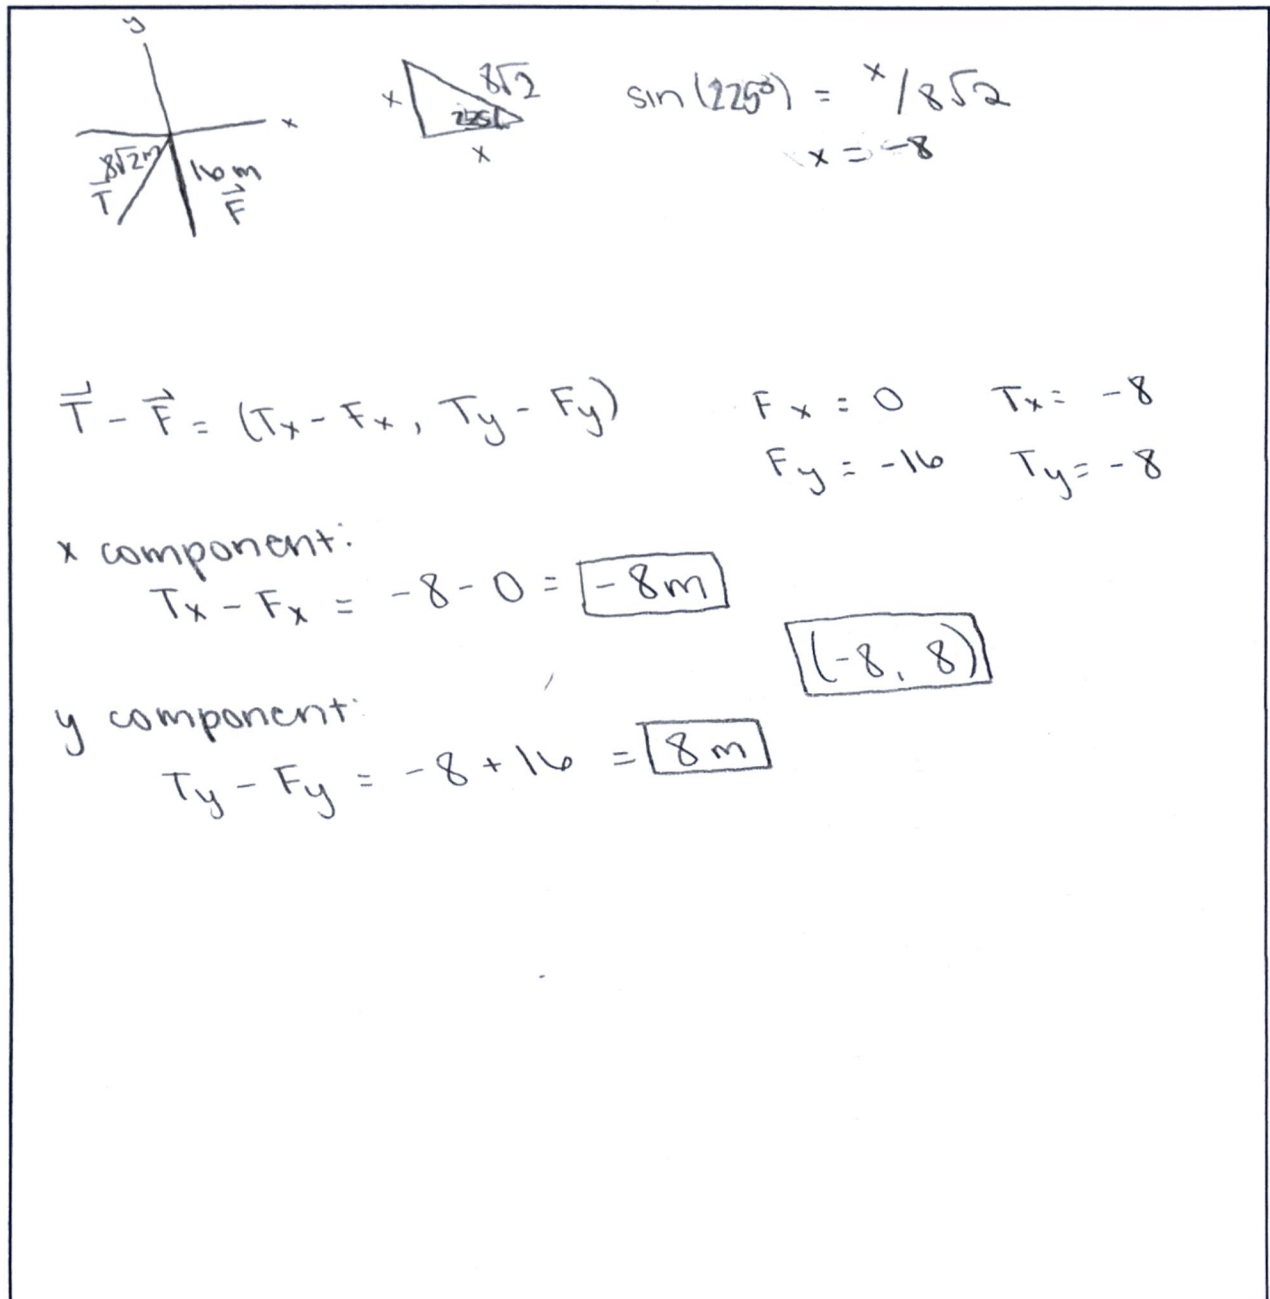 y
x
8√2m
T⃗
16m
F⃗
x
8√2
225
x
sin(225°) = x/8√2
x = -8
T⃗ - F⃗ = (Tx - Fx, Ty - Fy)
Fx = 0 Tx = -8
Fy = -16 Ty = -8
x component:
Tx - Fx = -8 - 0 = -8m
(-8, 8)
y component:
Ty - Fy = -8 + 16 = 8m